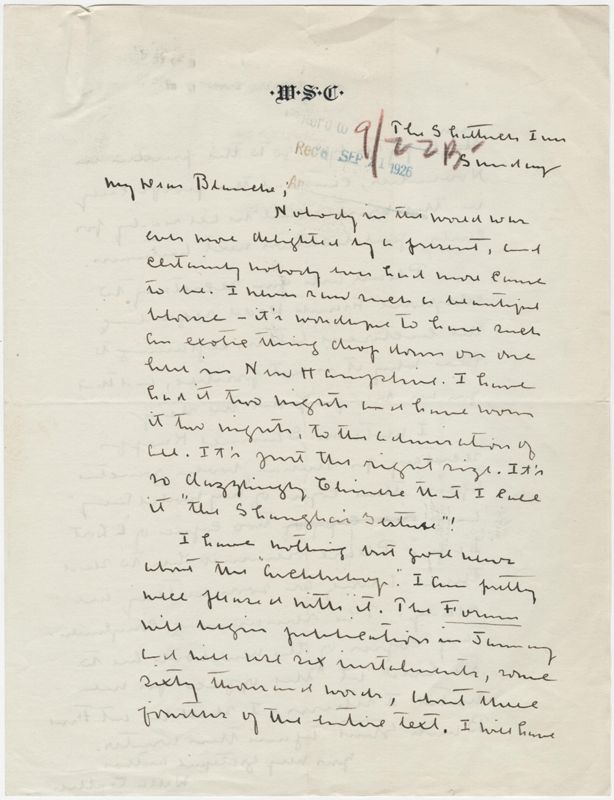 ·W·S·C·
The Shattuck Inn
Sunday
9/22 B
Rec'd SEP 21 1926
My Dear Blanche;
Nobody in the world was
ever more delighted by a present, and
certainly nobody ever had more cause
to be. I never saw such a beautiful
blouse – it's wonderful to have such
an exotic thing drop down on one
here in New Hampshire. I have
had it two nights and have worn
it two nights, to the admiration of
all. It's just the right size. It's
so dazzlingly Chinese that I call
it "the Shanghai Gesture"!
I have nothing but good news
about the "Archbishop". I am pretty
well pleased with it. The Forum
will begin publication in January
and will use six instalments, some
sixty thousand words, about three
fourths of the entire text. I will have